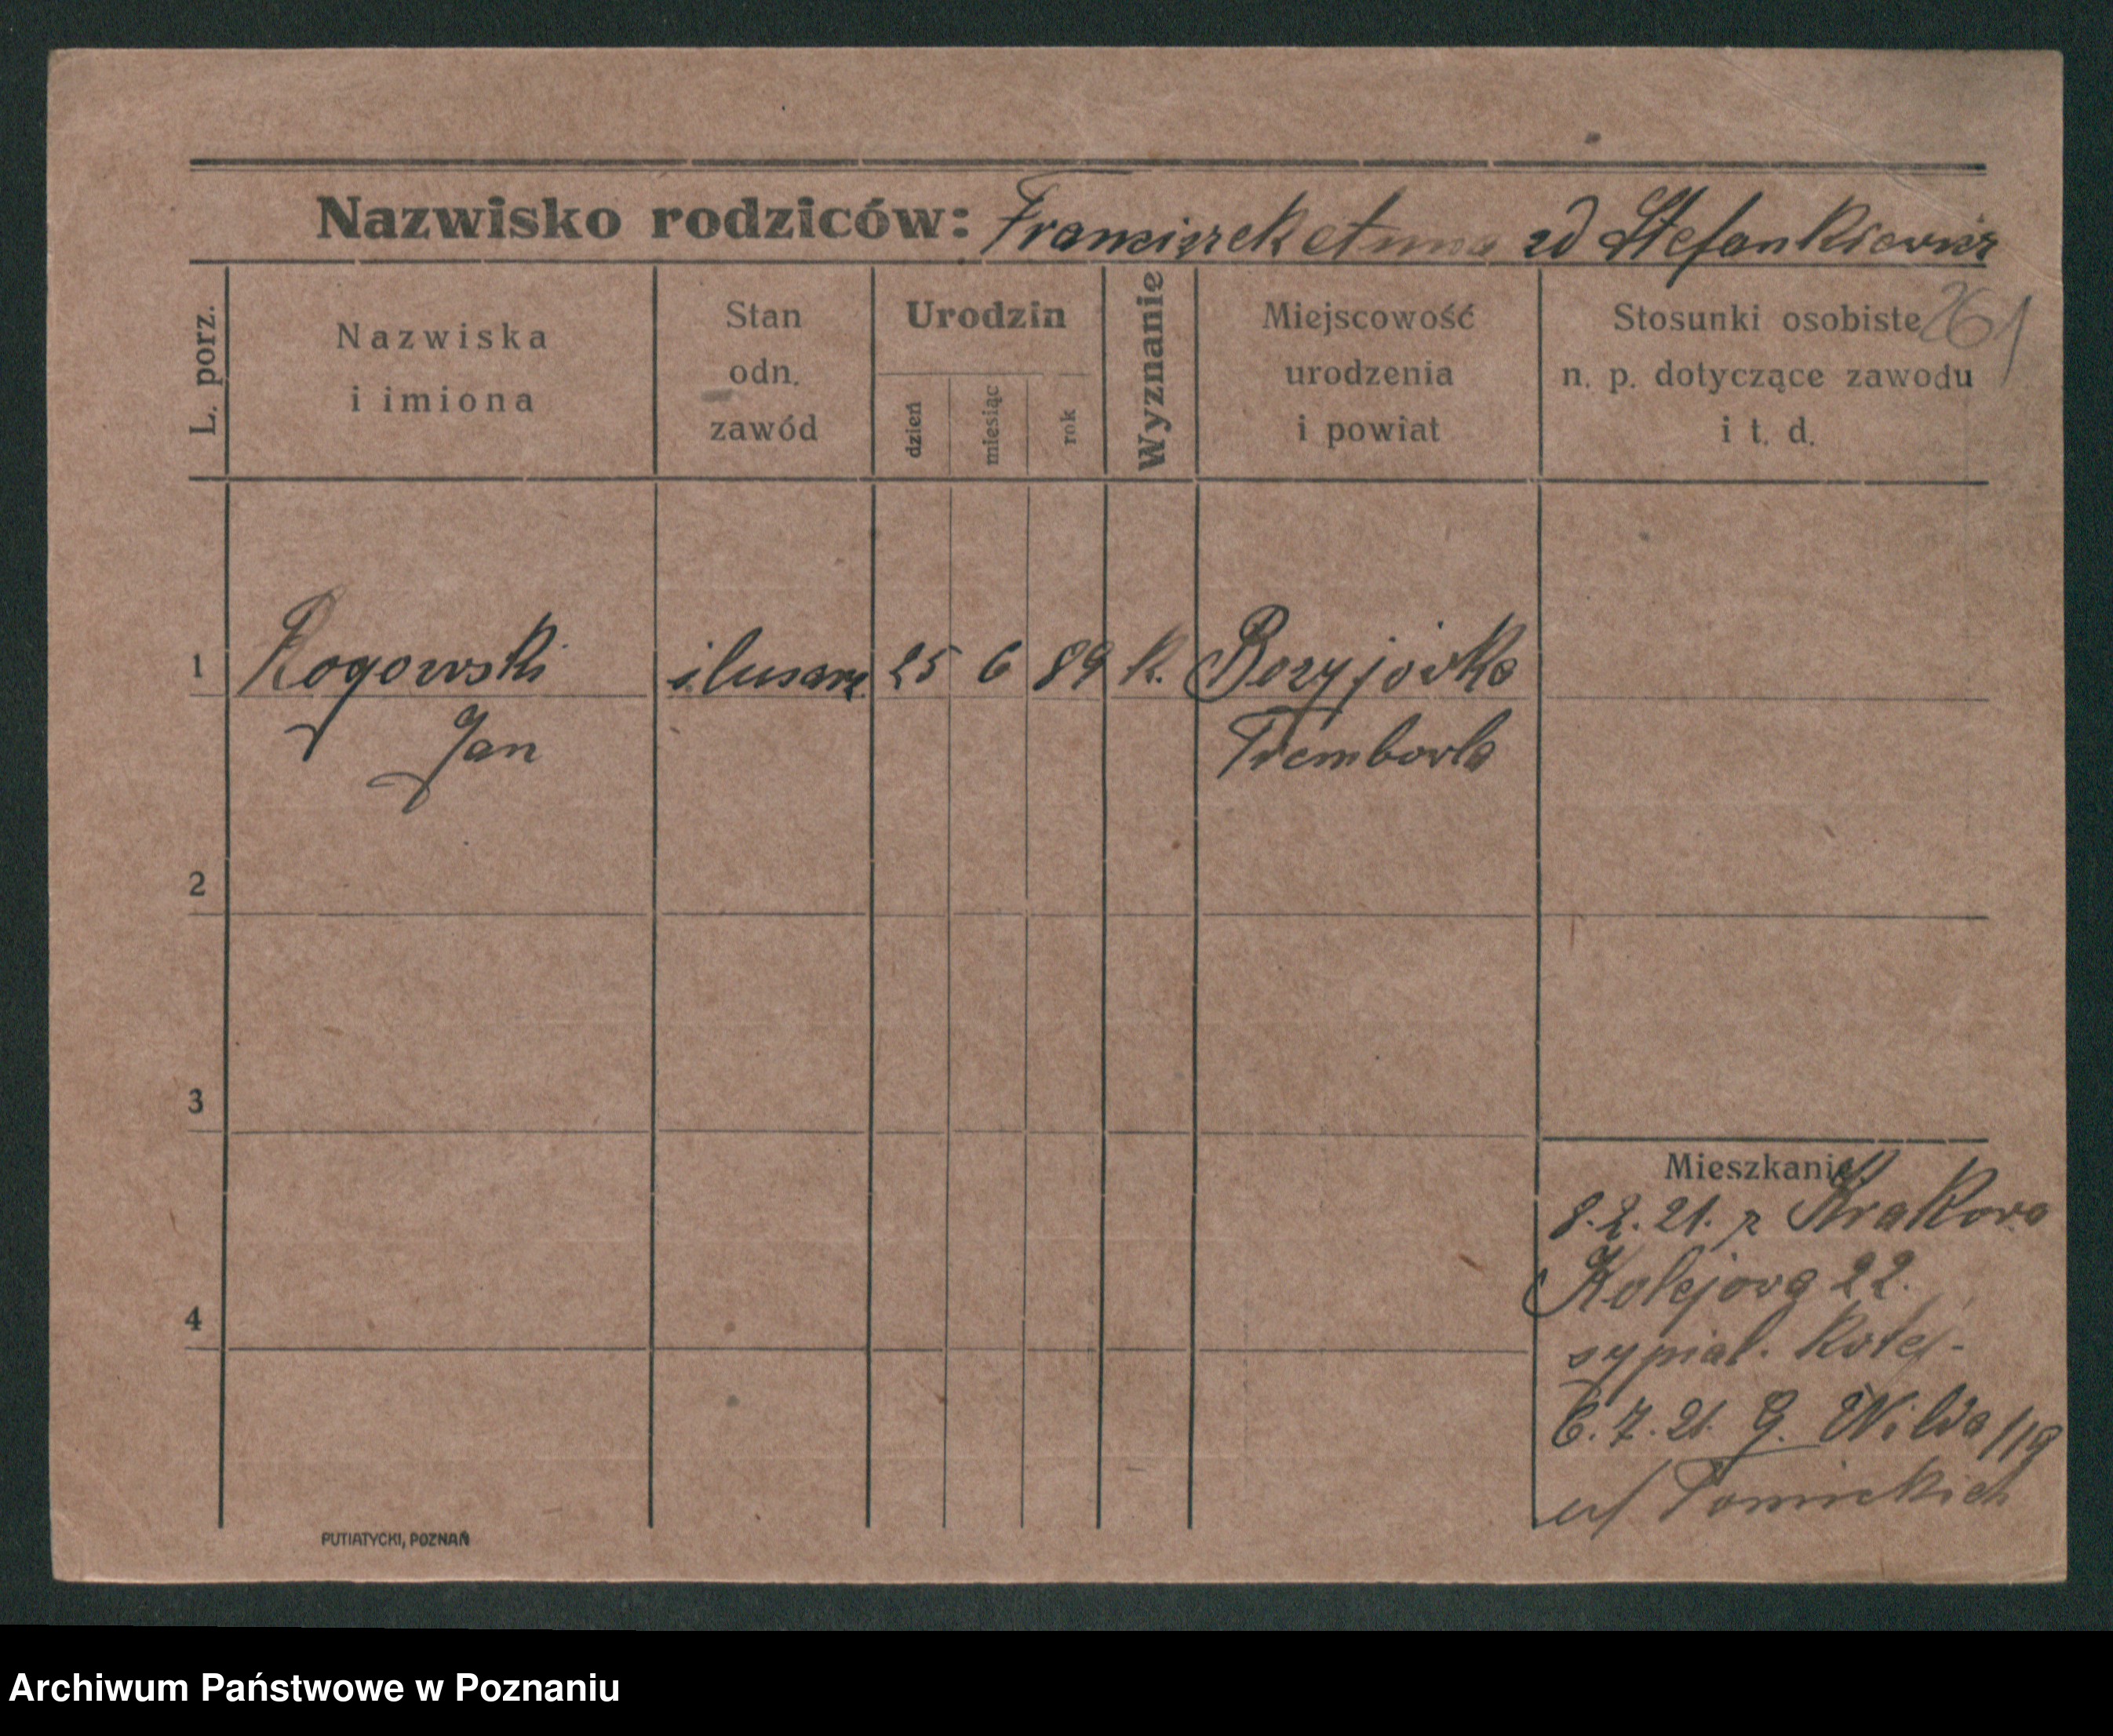 Nazwisko rodziców: Franciszek Anna zd Stefankiewicz
261
L. porz.
Nazwiska
i imiona
Stan
odn.
zawód
Urodzin
dzień
miesiąc
rok
Wyznanie
Miejscowość
urodzenia
i powiat
Stosunki osobiste
n. p. dotyczące zawodu
i t. d.
1 Rogowski ślusarz 25 6 89 k.
Jan Trembowla
2
3
4
Mieszkanie
8.2.21. z Krakowa
Kolejowa 22.
sypial. kolej-
6.7.21. G. Wilda 119
PUTIATYCKI, POZNAŃ
Archiwum Państwowe w Poznaniu